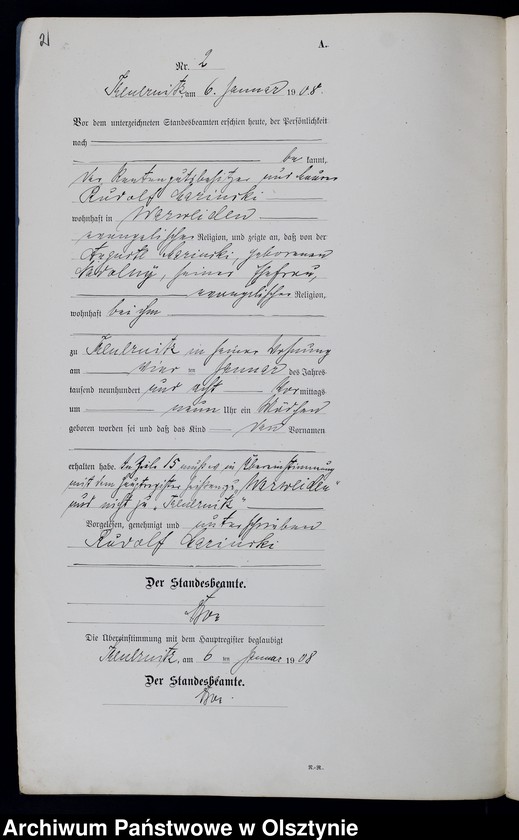 21
A.
Nr. 2
am 6. Januar 1908.
Vor dem unterzeichneten Standesbeamten erschien heute, der Persönlichkeit
nach
be kannt,
der Rentengutsbesitzer und
Rudolf
wohnhaft in Warweiden
evangelischer Religion, und zeigte an, daß von der
Auguste geborenen
Nadolny, seiner Ehefrau,
evangelischer Religion,
wohnhaft bei ihm
zu in seiner Wohnung
am vier ten Januar des Jahres
tausend neunhundert und acht Vor mittags
um neun Uhr ein Mädchen
geboren worden sei und daß das Kind den Vornamen
erhalten habe. In Zeile 15 muß es in Übereinstimmung
mit dem Hauptregister "Warweiden"
und nicht zu
Vorgelesen, genehmigt und unterschrieben
Rudolf
Der Standesbeamte.
Die Übereinstimmung mit dem Hauptregister beglaubigt
am 6 ten Januar 1908
Der Standesbeamte.
R.-R.
Archiwum Państwowe w Olsztynie